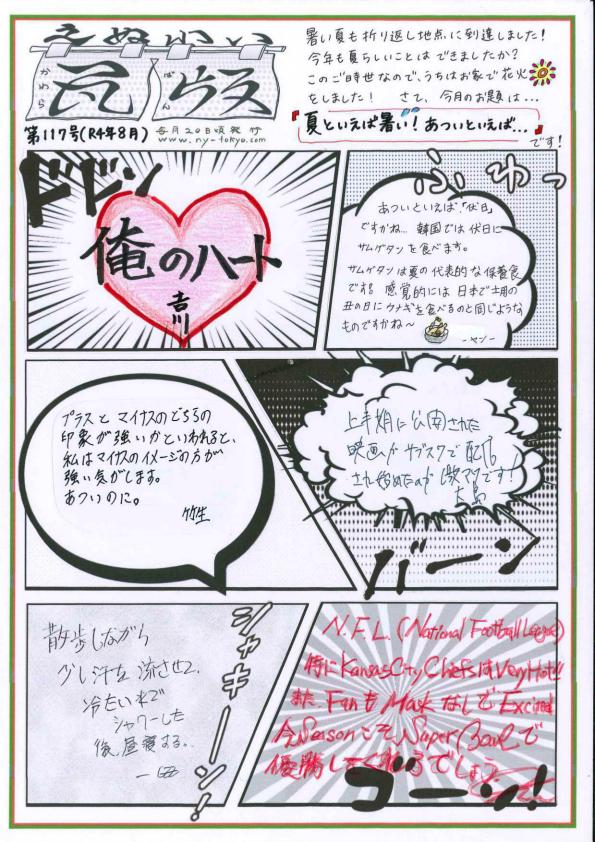 えぬわい
かわら
ばん
瓦版
第117号(R4年8月)
毎月20日頃発行
www.ny-tokyo.com
暑い夏も折り返し地点に到達しました!
今年も夏らしいことはできましたか?
このご時世なので、うちはお家で花火
をしました! さて、今月のお題は...
『夏といえば暑い!あついといえば...』
です!
ドドン
俺のハート
吉川
ふゅっ
あついといえば、「伏日」
ですかね... 韓国では伏日に
サムゲタンを食べます。
サムゲタンは夏の代表的な保養食
です! 感覚的には日本で土用の
丑の日にウナギを食べるのと同じような
ものですかね〜
プラスとマイナスのどちらの
印象が強いかといわれると、
私はマイナスのイメージの方が
強い気がします。
あついのに。
竹生
上半期に公開された
映画がサブスクで配信
され始めたのが激アツです!
大島
バーン
散歩しながら
少し汗を流させて、
冷たい水で
シャワーした
後、昼寝する、
シャキーーン!
N.F.L. (National Football League)
特にKansas City ChiefsはVery Hot!!
また、FanもMaskなしでExcited
今SeasonこそSuper Bowlで
優勝してくれるでしょう
ゴーン!